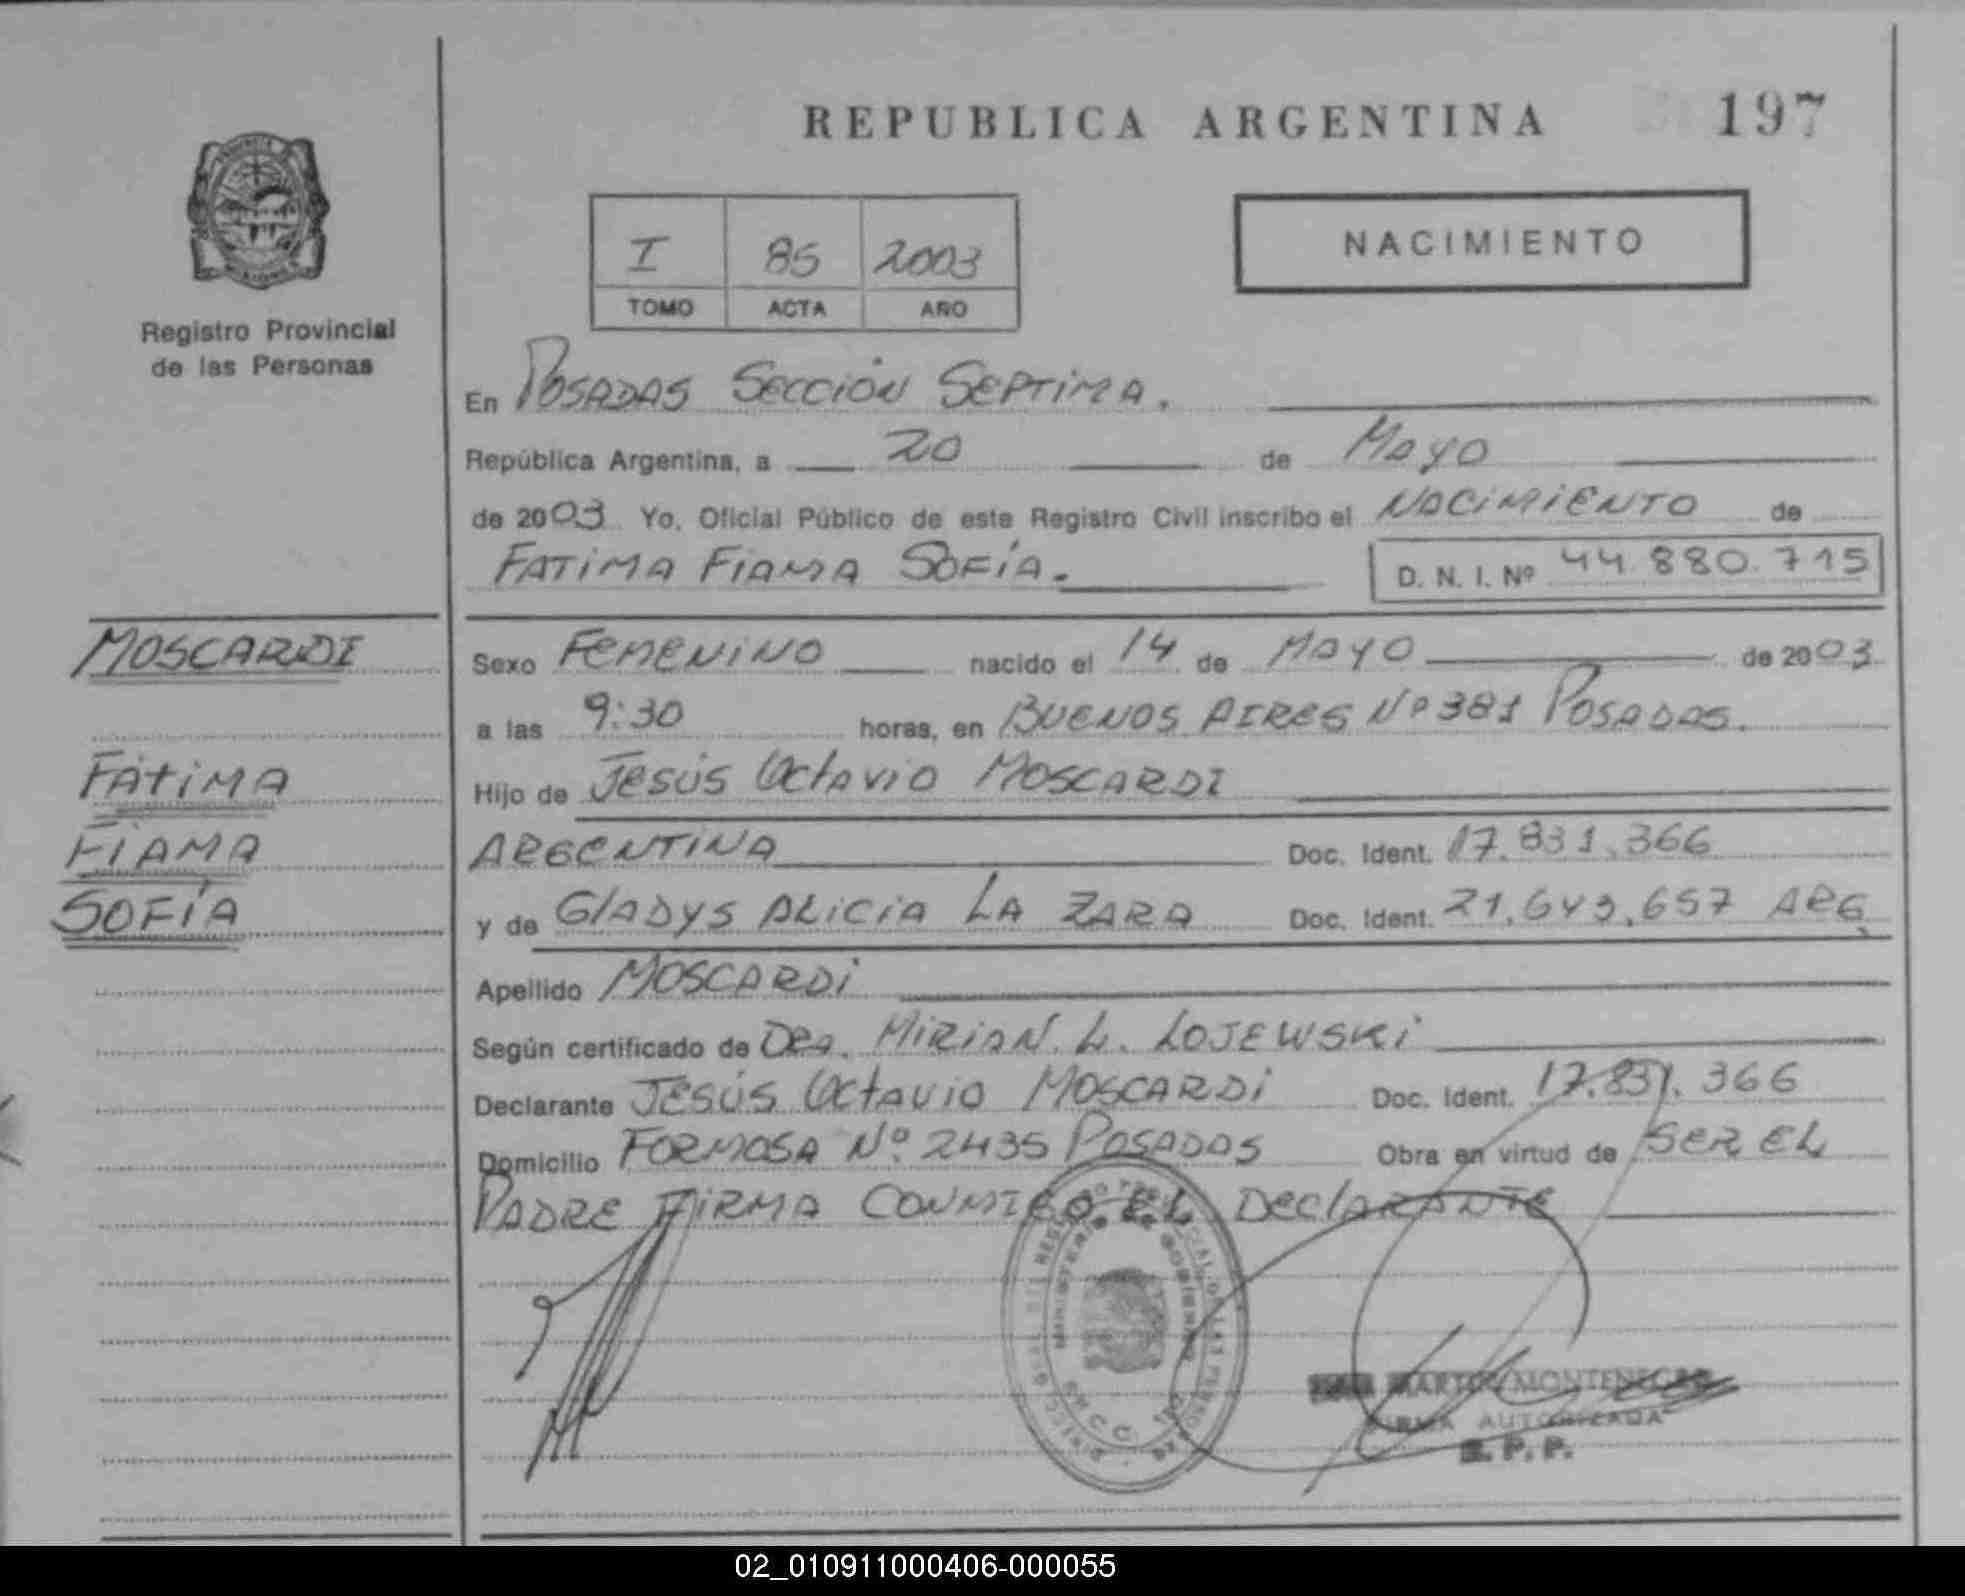 REPUBLICA ARGENTINA 197
I 85 2003
TOMO ACTA AÑO
NACIMIENTO
Registro Provincial
de las Personas
En POSADAS SECCIÓN SEPTIMA.
República Argentina, a 20 de Mayo
de 2003 Yo, Oficial Público de este Registro Civil inscribo el NACIMIENTO de
FATIMA FIAMA SOFÍA.
D. N. I. Nº 44.880.715
MOSCARDI
FATIMA
FIAMA
SOFÍA
Sexo FEMENINO nacido el 14 de MAYO de 2003
a las 9:30 horas, en BUENOS AIRES Nº 381 POSADAS.
Hijo de JESÚS OCTAVIO MOSCARDI
ARGENTINA Doc. Ident. 17.831.366
y de GLADYS ALICIA LA ZARA Doc. Ident. 21.643.657 ARG
Apellido MOSCARDI
Según certificado de DRA. MIRIAN. L. LOJEWSKI
Declarante JESÚS OCTAVIO MOSCARDI Doc. Ident. 17.831.366
Domicilio FORMOSA Nº 2435 POSADAS Obra en virtud de SER EL
PADRE FIRMA CONMIGO EL DECLARANTE
MONTENEGRO
FIRMA AUTORIZADA
R.P.P.
02_010911000406-000055